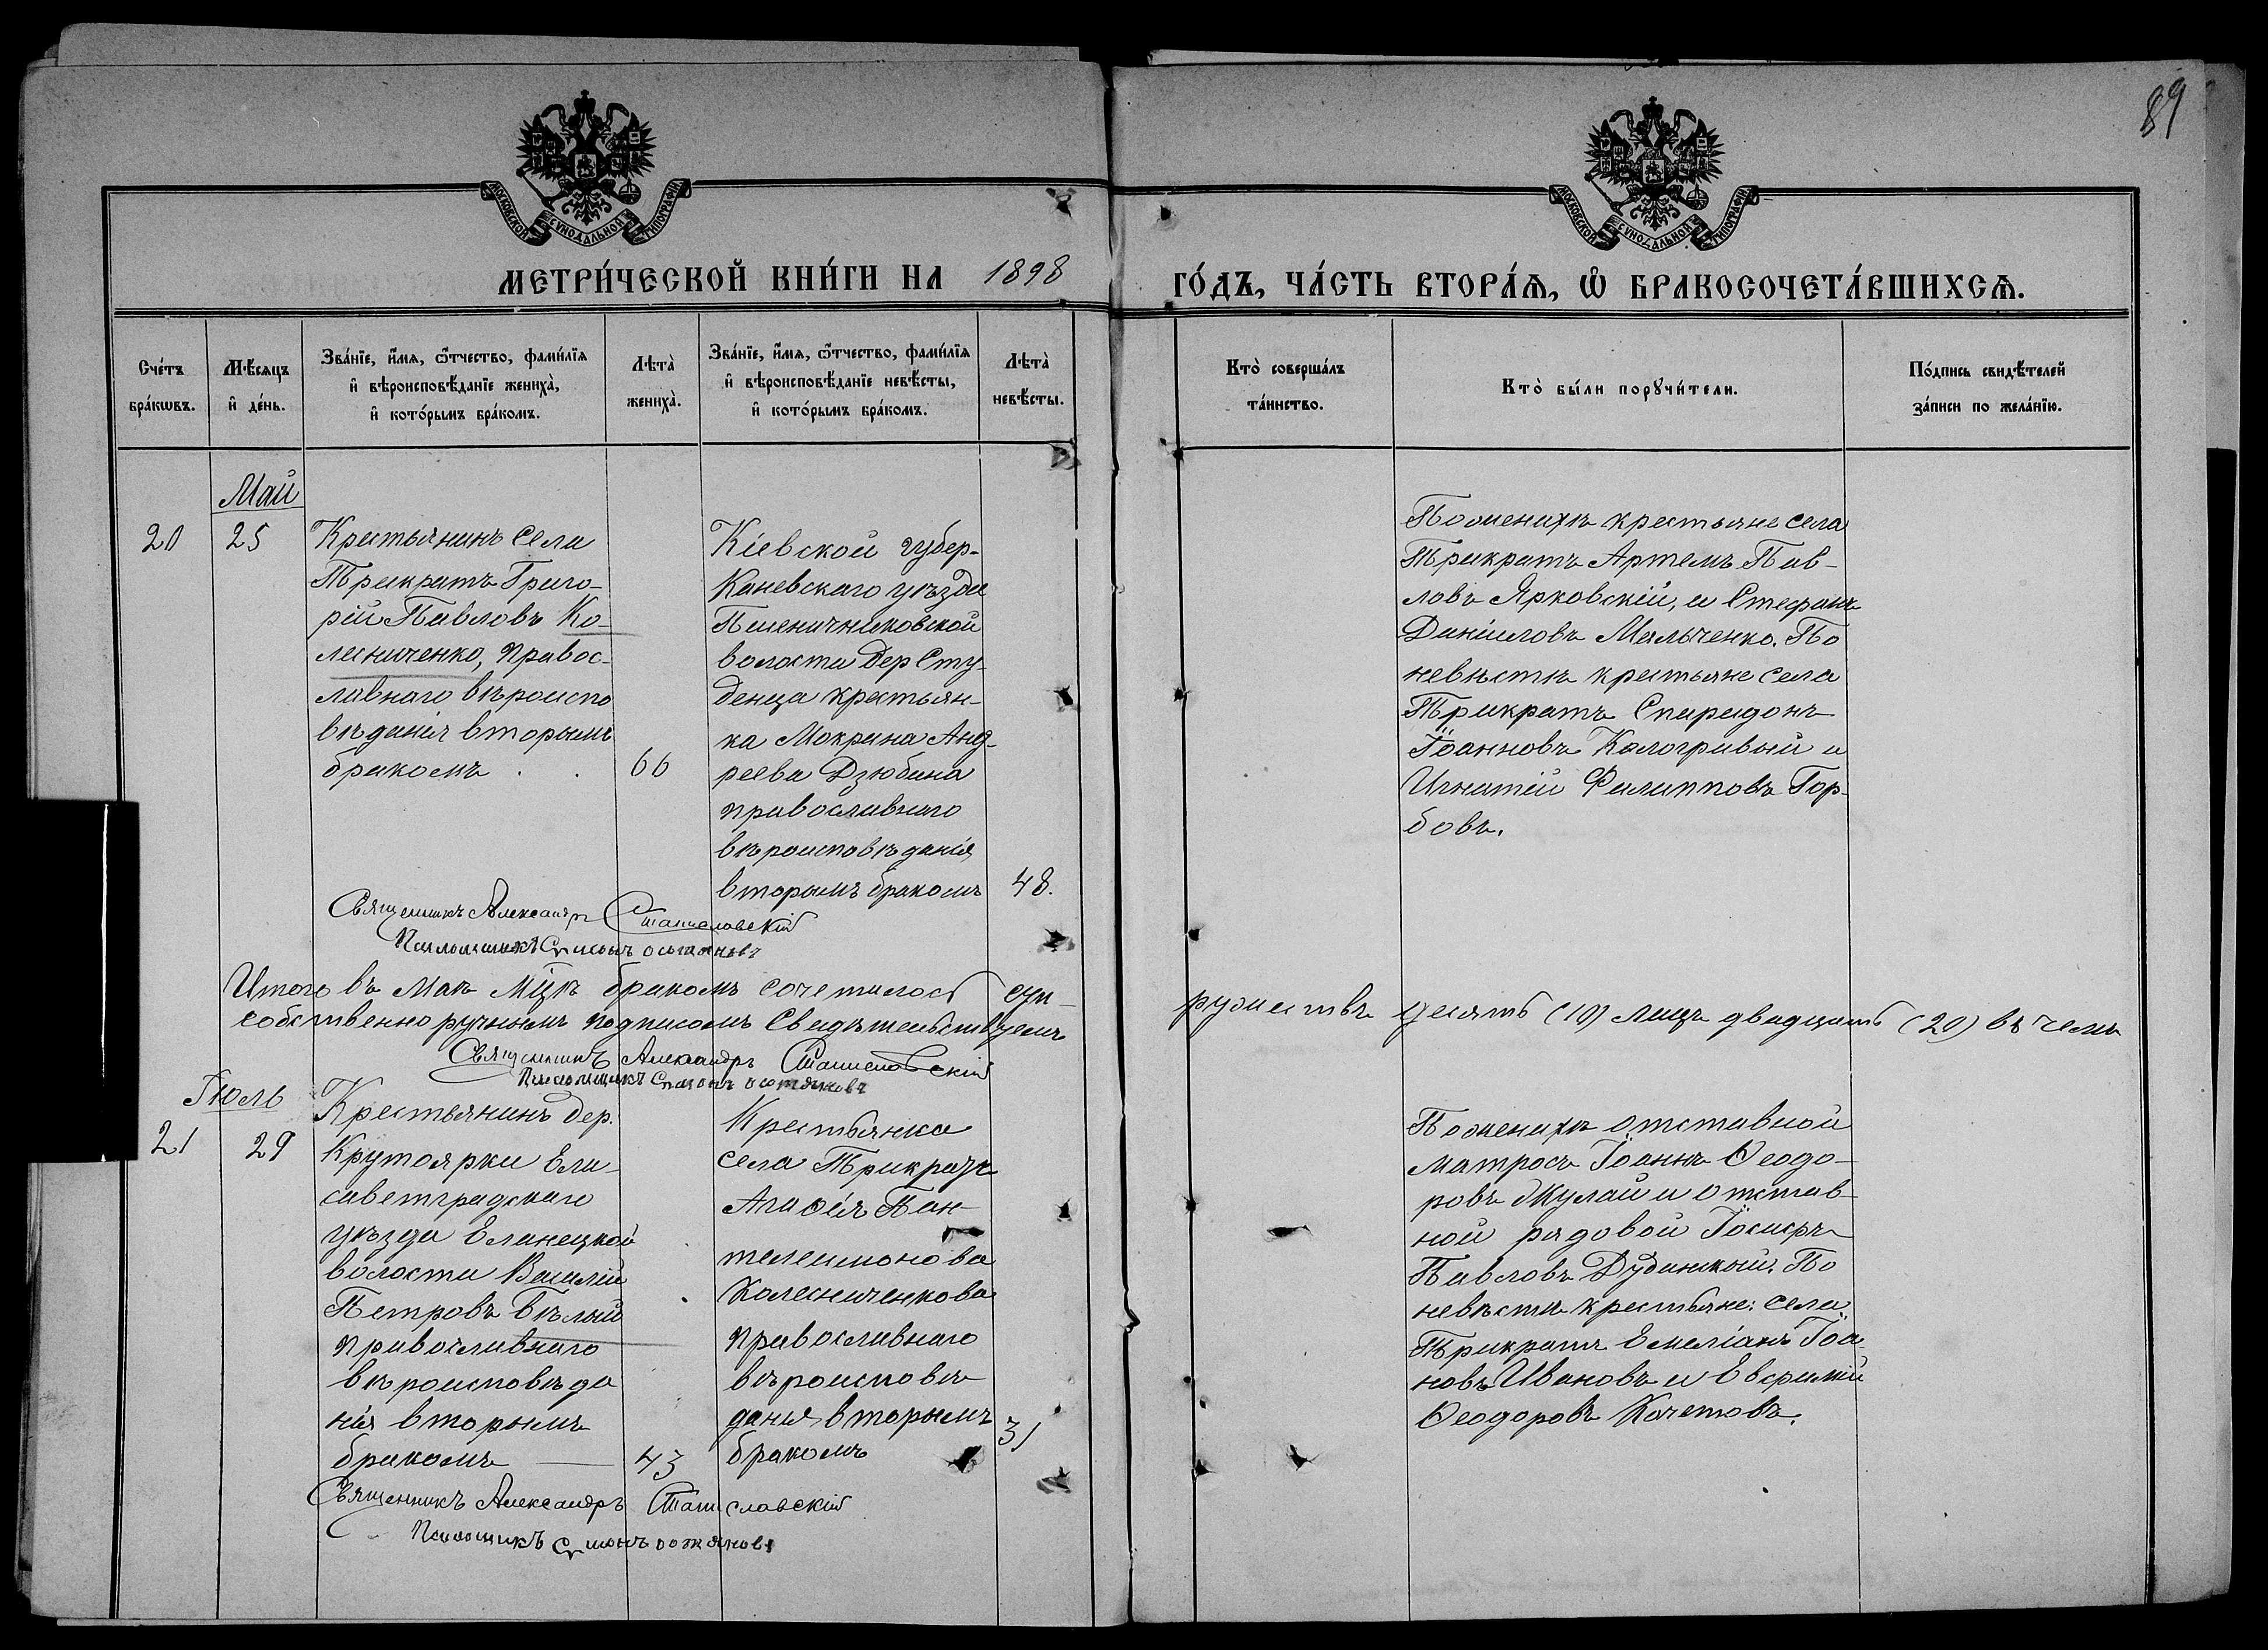 89
МОСКОВСКОЙ СУНОДАЛЬНОЙ ТИПОГРАФІИ
МОСКОВСКОЙ СУНОДАЛЬНОЙ ТИПОГРАФІИ
МЕТРИ́ЧЕСКОЙ КНИ́ГИ НА 1898
ГО́ДЪ, ЧА́СТЬ ВТОРА́Ѧ, Ѡ БРАКОСОЧЕТА́ВШИХСѦ.
Сче́тъ бра́кѡвъ.
Мѣ́сяцъ и де́нь.
Зва́нїе, и́мя, ѿчество, фами́лїя
и вѣроисповѣ́данїе жениха̀,
и кото́рымъ бра́комъ.
Лѣта̀ жениха̀.
Зва́нїе, и́мя, ѿчество, фами́лїя
и вѣроисповѣ́данїе невѣ́сты,
и кото́рымъ бра́комъ.
Лѣта̀ невѣ́сты.
Кто̀ соверша́лъ
та́инство.
Кто̀ бы́ли порꙋчи́тели.
По́дпись свидѣ́телей
за́писи по жела́нїю.
Май
20
25
Крестьянинъ Села
Трикратъ Григо-
рій Павловъ Ко-
лесниченко, правос-
лавнаго вѣроиспо
вѣданія вторымъ
бракомъ . .
66
Кіевской губер-
Каневскаго уѣзда
Пшеничниковской
волости дер Сту-
денца крестьян-
ка Мокрина Анд-
реева Дзюбина
православнаго
вѣроисповѣданія
вторымъ бракомъ
48.
По женихѣ крестьяне села
Трикратъ Артемъ Пав-
ловъ Ярковскій, и Стефанъ
Даніиловъ Мальченко. По
невѣстѣ крестьяне села
Трикратъ Спиридонъ
Іоанновъ Калогривый и
Игнатій Филипповъ Гор-
бовъ.
Священникъ Александръ Станиславский
Псаломщикъ Симонъ
Итого въ Маѣ м̃цѣ бракомъ сочеталось суп-
ружествъ десять (10) лицъ двадцать (20) въ чемъ
собственноручнымъ подписомъ Свидѣтельствуемъ
Священникъ Александръ Станиславскій
Псаломщикъ Симонъ
Іюль
21
29
Крестьянинъ дер.
Крутоярки Ели-
саветградскаго
уѣзда Еланецкой
волости Василій
Петровъ Бѣлый
православнаго
вѣроисповѣда
нія вторымъ
бракомъ —
43
Крестьянка
села Трикратъ
Агаѳія Пан-
телеимонова
Колесниченкова
православнаго
вѣроисповѣ-
данія вторымъ
бракомъ
31
По женихѣ отставной
матросъ Іоаннъ Ѳеодо-
ровъ Жулай и отстав-
ной рядовой Іосифъ
Павловъ Дудницкій. По
невѣстѣ крестьяне: села
Трикратъ Емеліанъ Іоа
новъ Ивановъ и Евфимій
Ѳеодоровъ Кочетовъ.
Священникъ Александръ Станиславскій
Псаломщикъ Симонъ